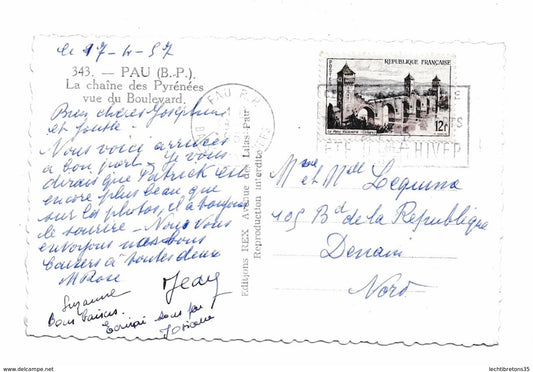 le 17-4-57
343. — PAU (B.-P.).
La chaîne des Pyrénées
vue du Boulevard.
Bien chères Joséphine
et
Nous voici arrivées
à bon port - Je vous
dirais que Patrick est
encore plus beau que
sur les photos, il a toujours
le sourire - Nous vous
envoyons nos bons
baisers à toutes deux
M Rose
Suzanne
Jean
Bons baisers.
Josiane
Editions REX, Avenue des Lilas-Pau
Reproduction interdite
PAU R.P.
POSTES
REPUBLIQUE FRANÇAISE
12F
ETE HIVER
Mme et Mlle Lequime
105 Bd de la Republique
Denain
Nord
https://www.delcampe.net
lechtibretons35